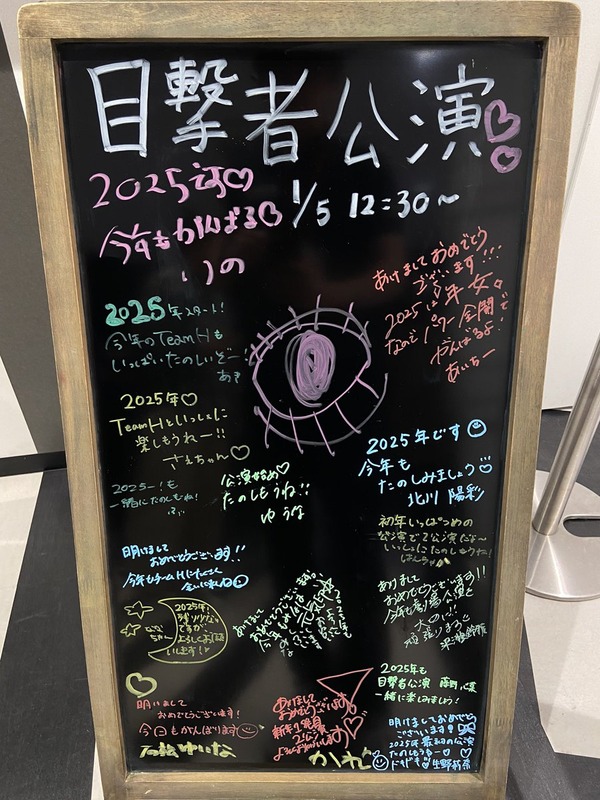 目撃者公演♡♡
1/5 12:30~
2025です♡
今年もがんばる♡
いの
あけましておめでとう
ございます!!!
2025は年女。
なのでパワー全開で
がんばるよ!
あいちー
2025年スタート!
今年のTeamHも
いっぱいたのしいぞー!
あき
2025年♡
TeamHといっしょに
楽しもうねー!!
さえちゃん♡
公演始め♡
たのしもうね!!
ゆうな
2025年です
今年も
たのしみましょう♡
北川 陽彩
2025ー!も
一緒にたのしもね!
初年いっぱつめの
公演だな~
明けまして
おめでとうございます!!
今年もチームHに
2025年!
残り少な
ですが
よろしくお願
いします!♪
あけまして
おめでとうございます!!
今年も劇場公演を
大切に!
頑張りまる
あけまして
2025年も
目撃者公演
一緒に楽しみましょう!
明けまして
おめでとうございます!
今日もがんばります
石松ゆいな
あけまして
おめでとう
ございます
よろしくお願いします
かれん
明けましておめでとう
ございます!!
2025年最初の公演
たのしもうねー♡
生野莉奈